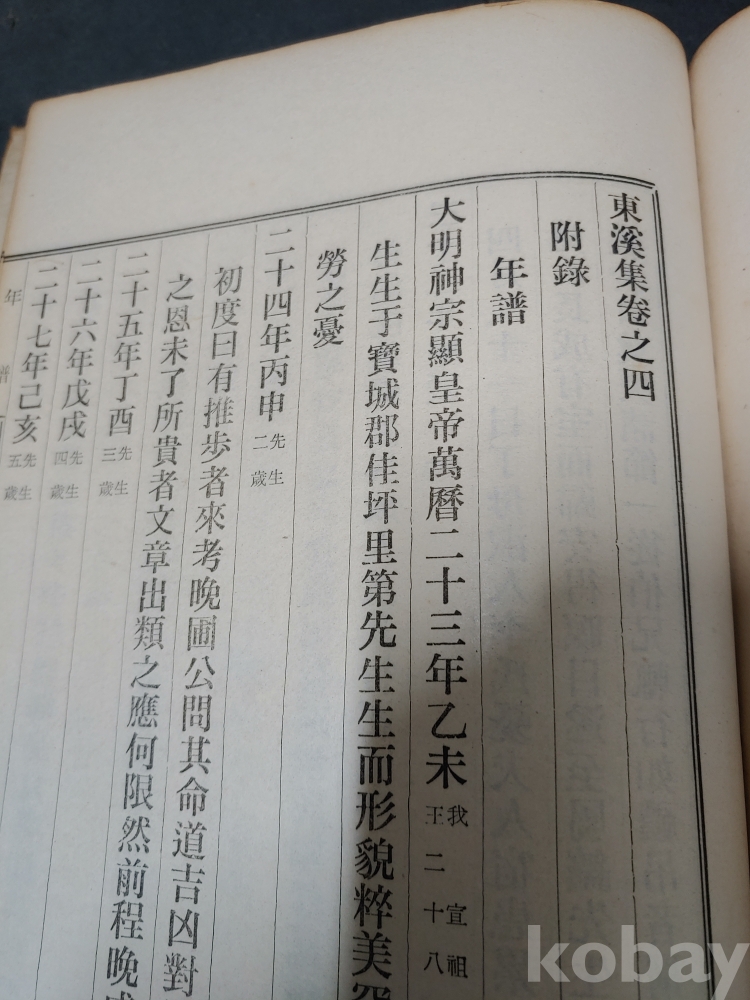 東溪集卷之四
附錄
年譜
大明神宗顯皇帝萬曆二十三年乙未 我 宣祖
王二十八
生生于寶城郡佳坪里第先生生而形貌粹美
勞之憂
二十四年丙申 先生
二歲
初度日有推步者來考晩圃公問其命道吉凶對
之恩未了所貴者文章出類之應何限然前程晩
二十五年丁酉 先生
三歲
二十六年戊戌 先生
四歲
二十七年己亥 先生
五歲
年譜
kobay